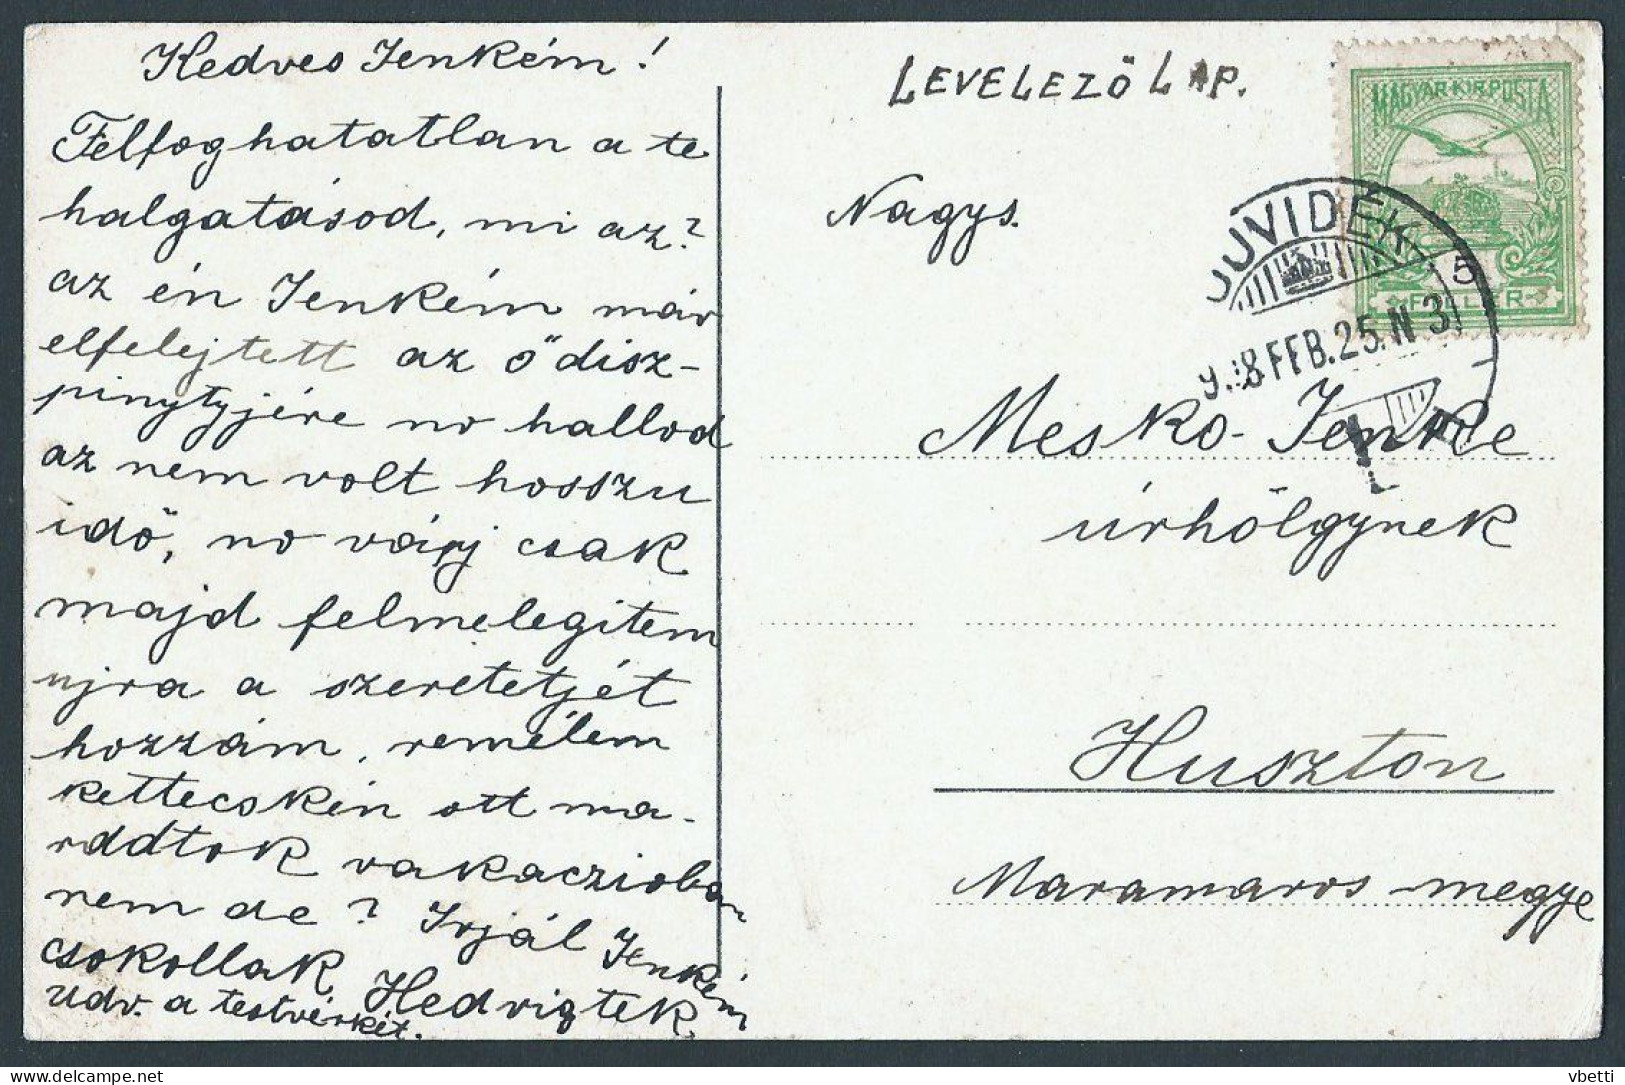 Kedves Jenkém!
Felfoghatatlan a te
halgatásod, mi az?
az én Jenkém már
elfelejtett az ő disz-
pinytyjére no hallod
az nem volt hosszu
idő, no várj csak
majd felmelegitem
ujra a szeretetjét
hozzám, remélem
kettecskén ott ma-
rddtok vakaczioban
nem de? Irjál Jenkém
csokollak Hedvigtek.
Udv. a testvérkét.
LEVELEZŐ LAP.
MAGYAR KIR POSTA
UJVIDÉK
FILLÉR
5
FEB. 25. N 3
Nagys.
Mesko-Jenke
úrhölgynek
Huszton
Maramaros-megye
vbetti